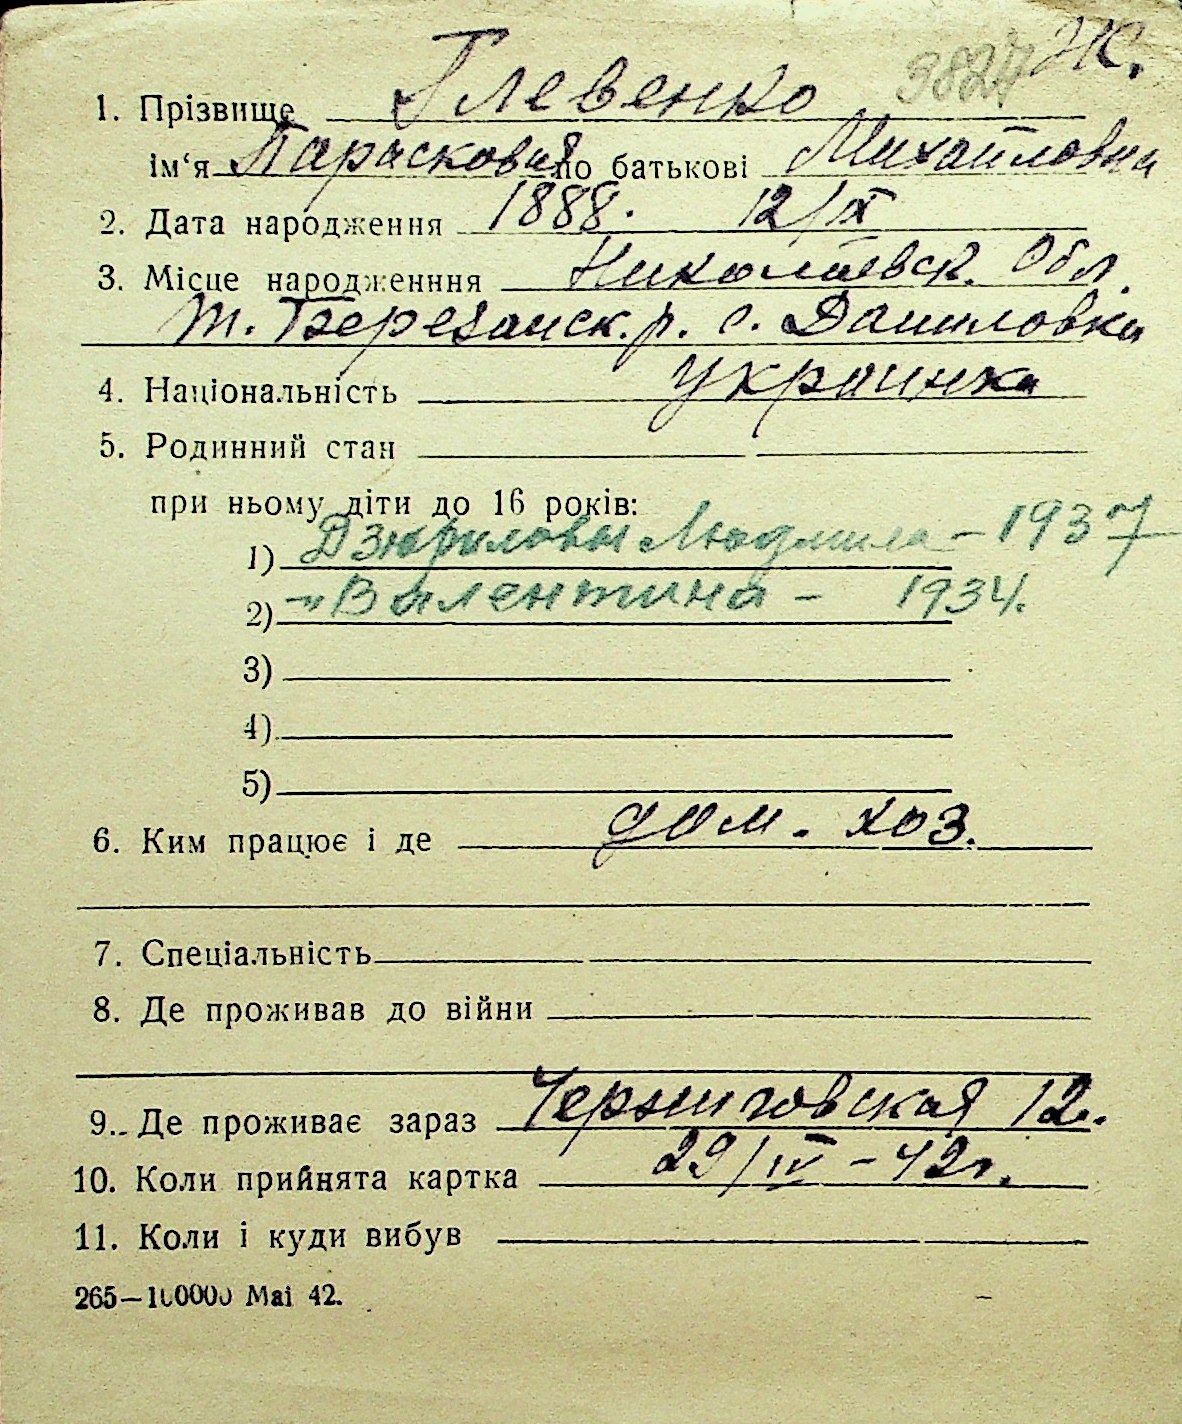 9827 Ж.
1. Прізвище Глевенко
ім‘я Парасковия по батькові Михайловна
2. Дата народження 1888. 12/IX
3. Місце народженння Николаевск. Обл.
т. Березанск. р. с. Даниловка
4. Національність украинка
5. Родинний стан
при ньому діти до 16 років:
1) Людмила – 1937
2) –„– Валентина – 1934.
3)
4)
5)
6. Ким працює і де дом. хоз.
7. Спеціальність
8. Де проживав до війни
9. Де проживає зараз Черниговская 12.
10. Коли прийнята картка 29/IV – 42г.
11. Коли і куди вибув
265—100000 Mai 42.